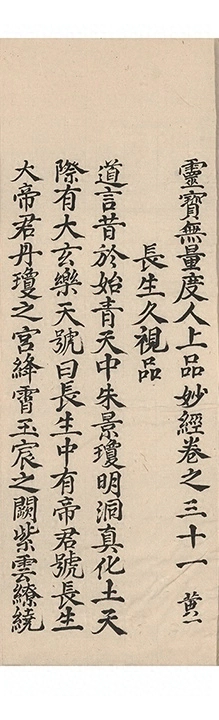 靈寶無量度人上品妙經卷之三十一 黃一
長生久視品
道言昔於始青天中朱景瓊明洞真化土天
際有大玄樂天號曰長生中有帝君號長生
大帝君丹瓊之宮絳霄玉宸之闕紫雲繚繞